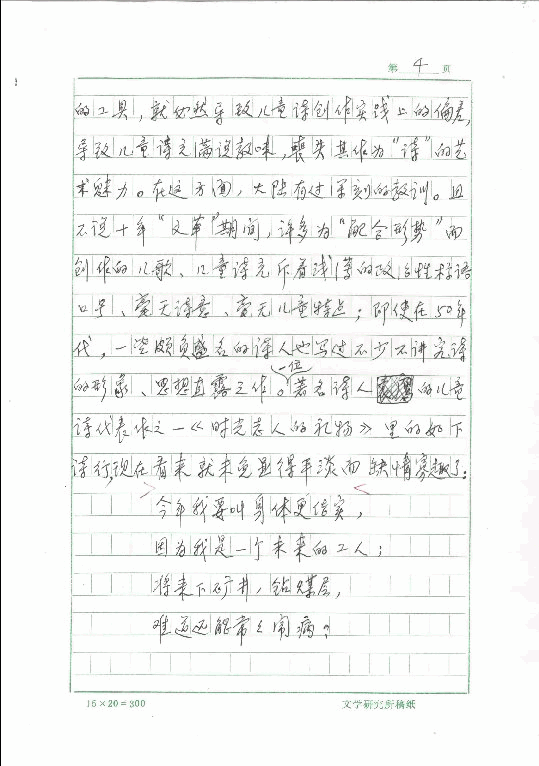 第 4 页
的工具，就必然导致儿童诗创作实践上的偏差，
导致儿童诗充满说教味，丧失其作为“诗”的艺
术魅力。在这方面，大陆有过深刻的教训。且
不说十年“文革”期间，许多为“配合形势”而
创作的儿歌、儿童诗充斥着浅薄的政治性标语
口号、毫无诗意、毫无儿童特点；即使在50年
代，一些颇负盛名的诗人也写过不少不讲究诗
的形象、思想直露之作。一位著名诗人的儿童
诗代表作之一《时光老人的礼物》里的如下
诗行，现在看来就未免显得平淡而缺情寡趣了：
今年我要叫身体更结实，
因为我是一个未来的工人；
将来下矿井，钻煤层，
难道还能常常闹病？
16×20=300
文学研究所稿纸